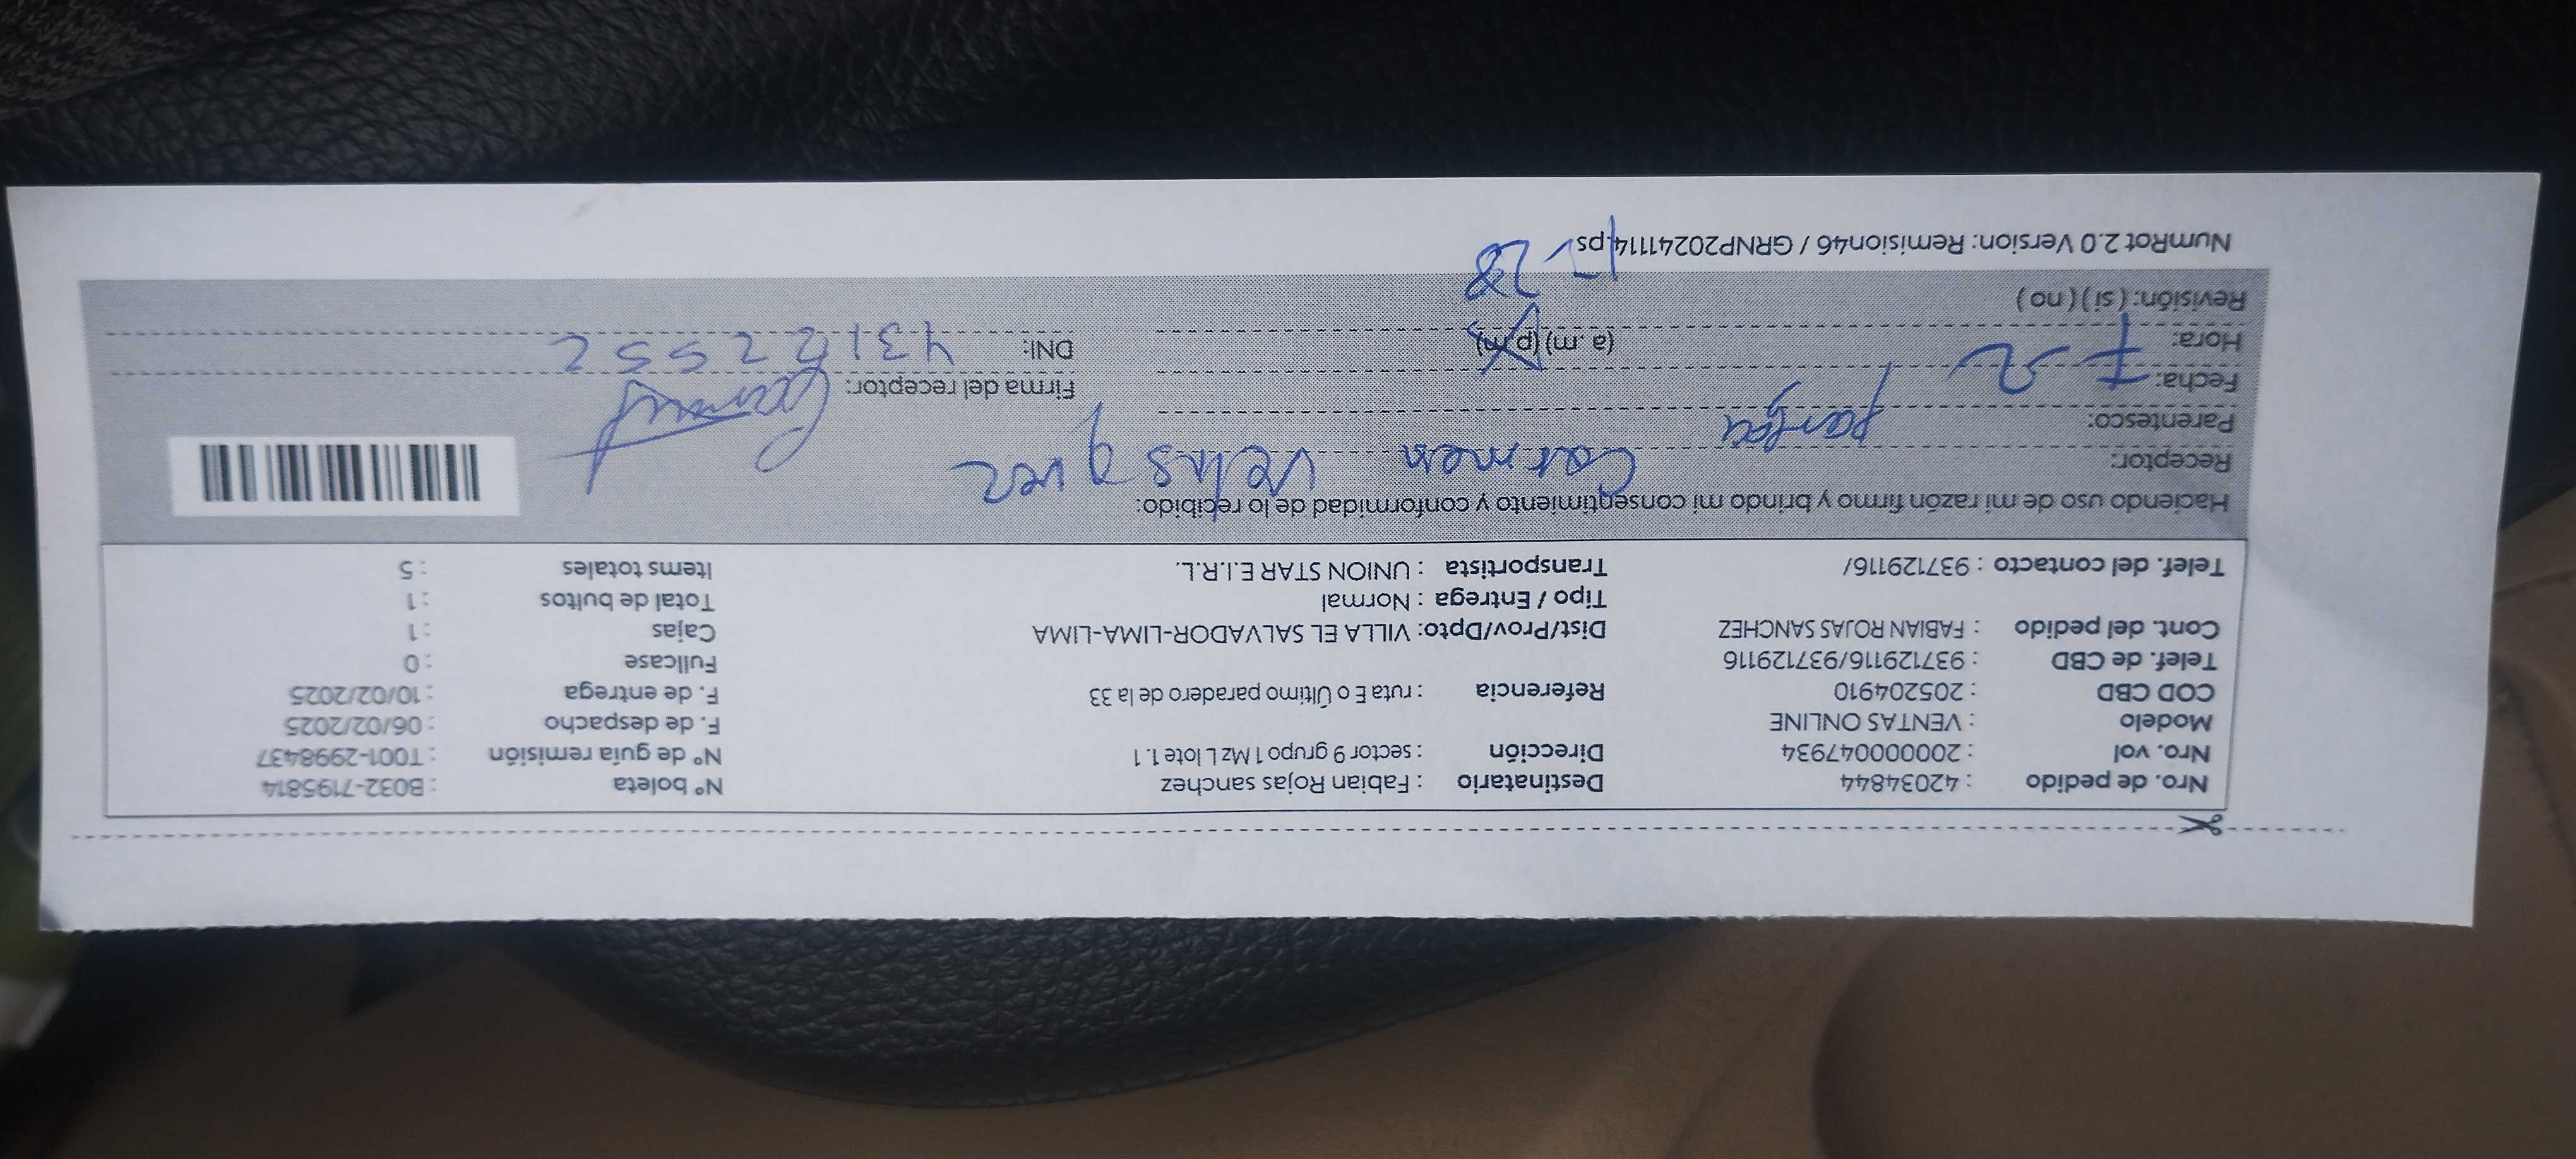 Nro. de pedido : 42034844 Destinatario : Fabian Rojas sanchez N° boleta : B032-7195814
Nro. vol : 2000000047934 Dirección : sector 9 grupo 1 Mz L lote 1.1 N° de guía remisión : T001-2998437
Modelo : VENTAS ONLINE F. de despacho : 06/02/2025
COD CBD : 205204910 Referencia : ruta E o Último paradero de la 33 F. de entrega : 10/02/2025
Telef. de CBD : 937129116/937129116 Fullcase : 0
Cont. del pedido : FABIAN ROJAS SANCHEZ Dist/Prov/Dpto: VILLA EL SALVADOR-LIMA-LIMA Cajas : 1
Tipo / Entrega : Normal Total de bultos : 1
Telef. del contacto : 937129116/ Transportista : UNION STAR E.I.R.L. Items totales : 5
Haciendo uso de mi razón firmo y brindo mi consentimiento y conformidad de lo recibido:
Receptor: Carmen
Parentesco:
Fecha: 7 2 Firma del receptor:
Hora: (a.m) (p.m) DNI:
Revisión: ( si ) ( no ) 28
NumRot 2.0 Version: Remision46 / GRNP20241114.ps